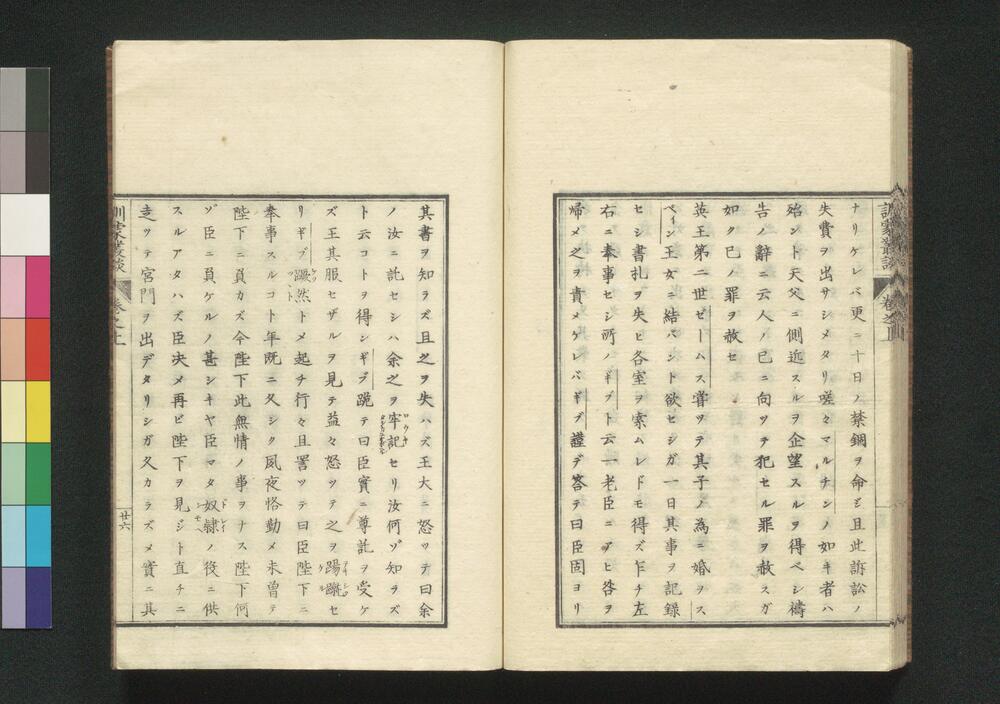 ナリケレバ更ニ十日ノ禁錮ヲ命ジ且此訴訟ノ
失費ヲ出サシメタリ嗟々マルチンノ如キ者ハ
殆ント天父ニ側近スルヲ企望スルヲ得ベシ禱
告ノ辭ニ云人ノ己ニ向ツテ犯セル罪ヲ赦スガ
如ク己ノ罪ヲ赦セ
英王第二世ゼームス嘗ツテ其子ノ為ニ婚ヲス
ペイン王女ニ結バント欲セシガ一日其事ヲ記録
セシ書札ヲ失ヒ各室ヲ索ムレドモ得ズ乍チ左
右ニ奉事セシ所ノギブト云一老臣ニアヒ咎ヲ
帰メ之ヲ責メケレバギブ證デ答テ曰臣固ヨリ
訓蒙叢談 卷之上
其書ヲ知ラズ且之ヲ失ハズ王大ニ怒ツテ曰余
ノ汝ニ託セシハ余之ヲ牢記セリ汝何ゾ知ラズ
ト云コトヲ得ンギブ跪テ曰臣實ニ尊託ヲ受ケ
ズ王其服セザルヲ見テ益々怒ツテ之ヲ踢蹴セ
リギブ蹶然トメ起チ行々且詈ツテ曰臣陛下ニ
奉事スルコト年既ニ久シク夙夜恪勤メ未曽テ
陛下ニ負カズ今陛下此無情ノ事ヲナス陛下何
ゾ臣ニ負ケルノ甚シキヤ臣マタ奴隷ノ役ニ供
スルアタハズ臣决メ再ビ陛下ヲ見ジト直チニ
走ツテ宮門ヲ出デタリシガ久カラズメ實ニ其
訓蒙叢談 卷之上 廿六